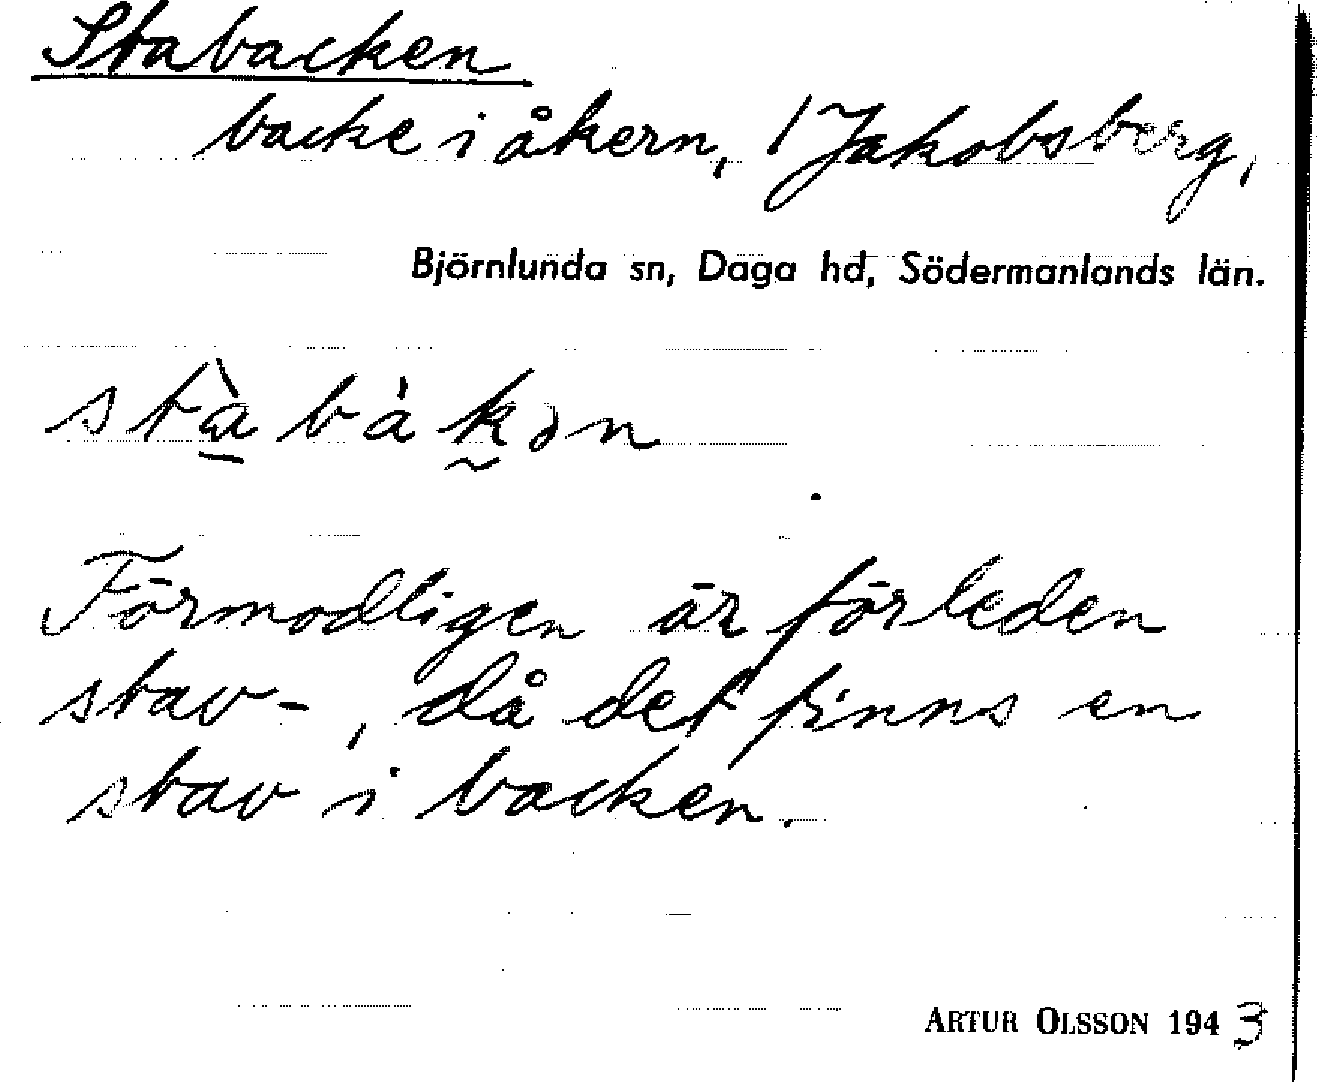 Stabacken
backe i åkern, 1 Jakobsberg,
Björnlunda sn, Daga hd, Södermanlands län.
stàbákən
Förmodligen är förleden
stav-, då det finns en
stav i backen.
ARTUR OLSSON 1943